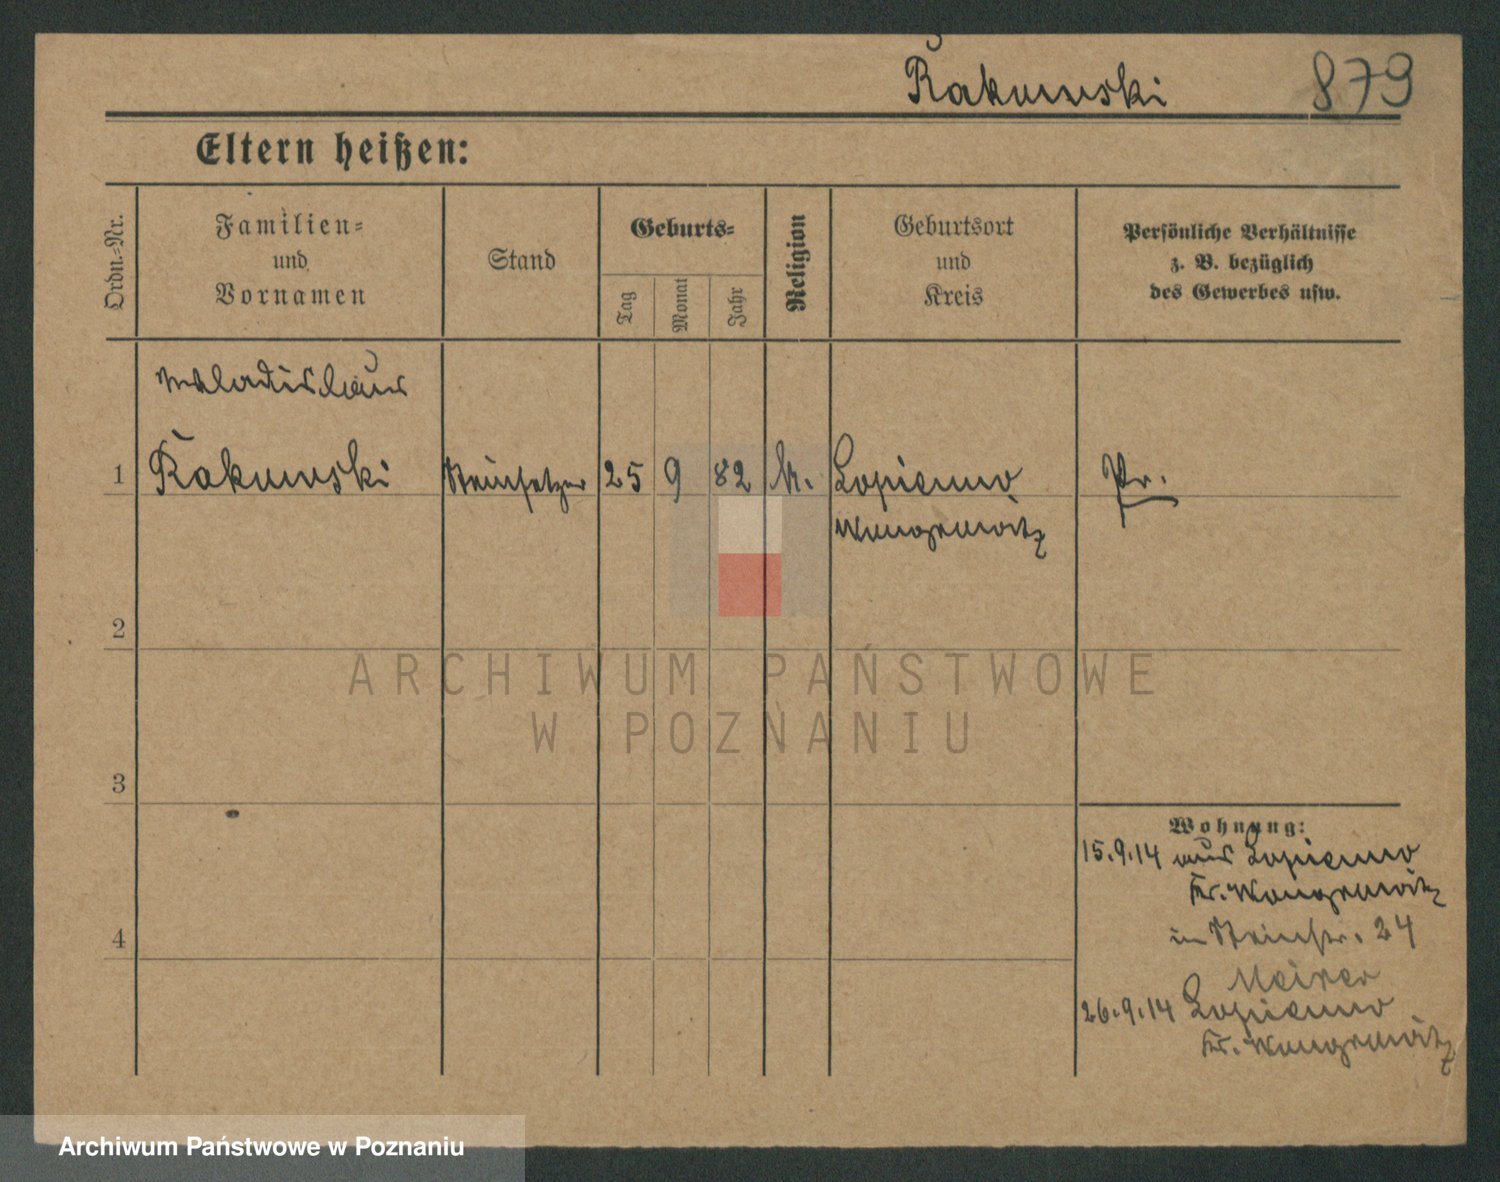 Rakowski 879
Eltern heißen:
Ordn.-Nr.
Familien-
und
Vornamen
Stand
Geburts-
Tag
Monat
Jahr
Religion
Geburtsort
und
Kreis
Persönliche Verhältnisse
z. B. bezüglich
des Gewerbes usw.
Wladislaus
1 Rakowski Steinsetzer 25 9 82 k. Lopienno Pr.
Wongrowitz
2
3
4
Wohnung:
15.9.14 aus Lopienno
Kr. Wongrowitz
in Steinstr. 24
26.9.14 Lopienno
Kr. Wongrowitz
ARCHIWUM PAŃSTWOWE
W POZNANIU
Archiwum Państwowe w Poznaniu